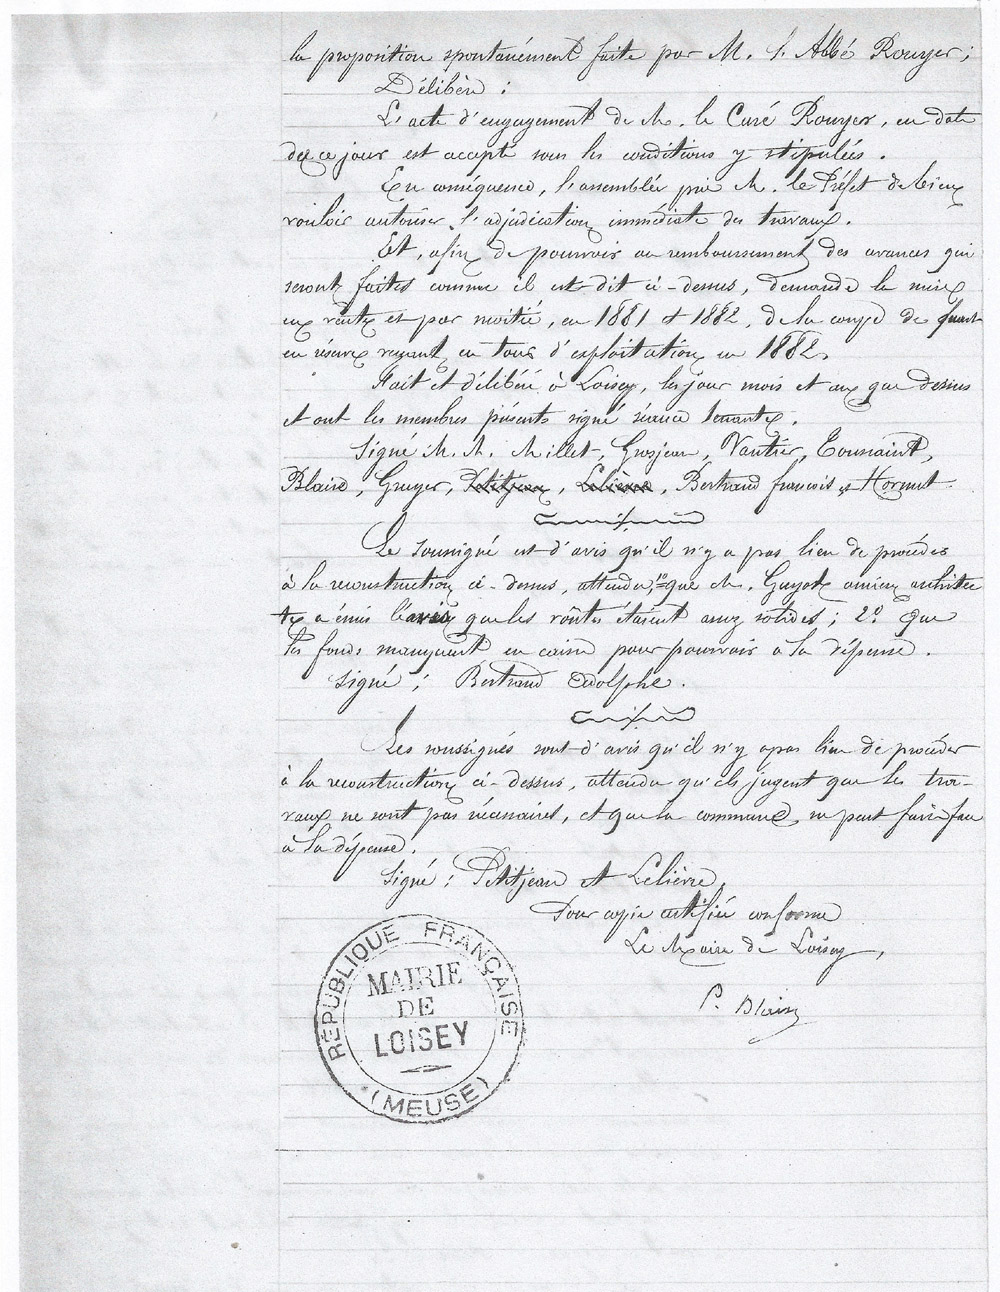 la proposition spontanément faite par M. l'Abbé Rouyer ;
Délibère :
L'acte d'engagement de M. le Curé Rouyer, en date
de ce jour est accepté sous les conditions y stipulées.
En conséquence, l'assemblée prie M. le Préfet de bien
vouloir autoriser l'adjudication immédiate des travaux.
Et, afin de pourvoir au remboursement des avances qui
seront faites comme il est dit ci-dessus, demande la mise
en vente et par moitié, en 1881 et 1882, de la coupe de quart
en réserve venant en tour d'exploitation en 1882.
Fait et délibéré à Loisey, les jour mois et an que dessus
et ont les membres présents signé séance tenante.
Signé M. M. Millet, Grosjean, Vautier, Toussaint,
Blaise, Gruyer, Petitjean, Lelièvre, Bertrand françois et
Le soussigné est d'avis qu'il n'y a pas lieu de procéder
à la reconstruction ci-dessus, attendu, 1º que M. Guyot ancien architec
te a émis l'avis que les voûtes étaient assez solides ; 2º que
les fonds manquent en caisse pour pourvoir à la dépense.
Signé ; Bertrand Adolphe.
Les soussignés sont d'avis qu'il n'y a pas lieu de procéder
à la reconstruction ci-dessus, attendu qu'ils jugent que les tra-
vaux ne sont pas nécessaires, et que la commune ne peut faire face
à la dépense.
Signé : Petitjean et Lelièvre.
Pour copie certifiée conforme
Le Maire de Loisey,
P. Blaise
RÉPUBLIQUE FRANÇAISE
MAIRIE
DE
LOISEY
(MEUSE)